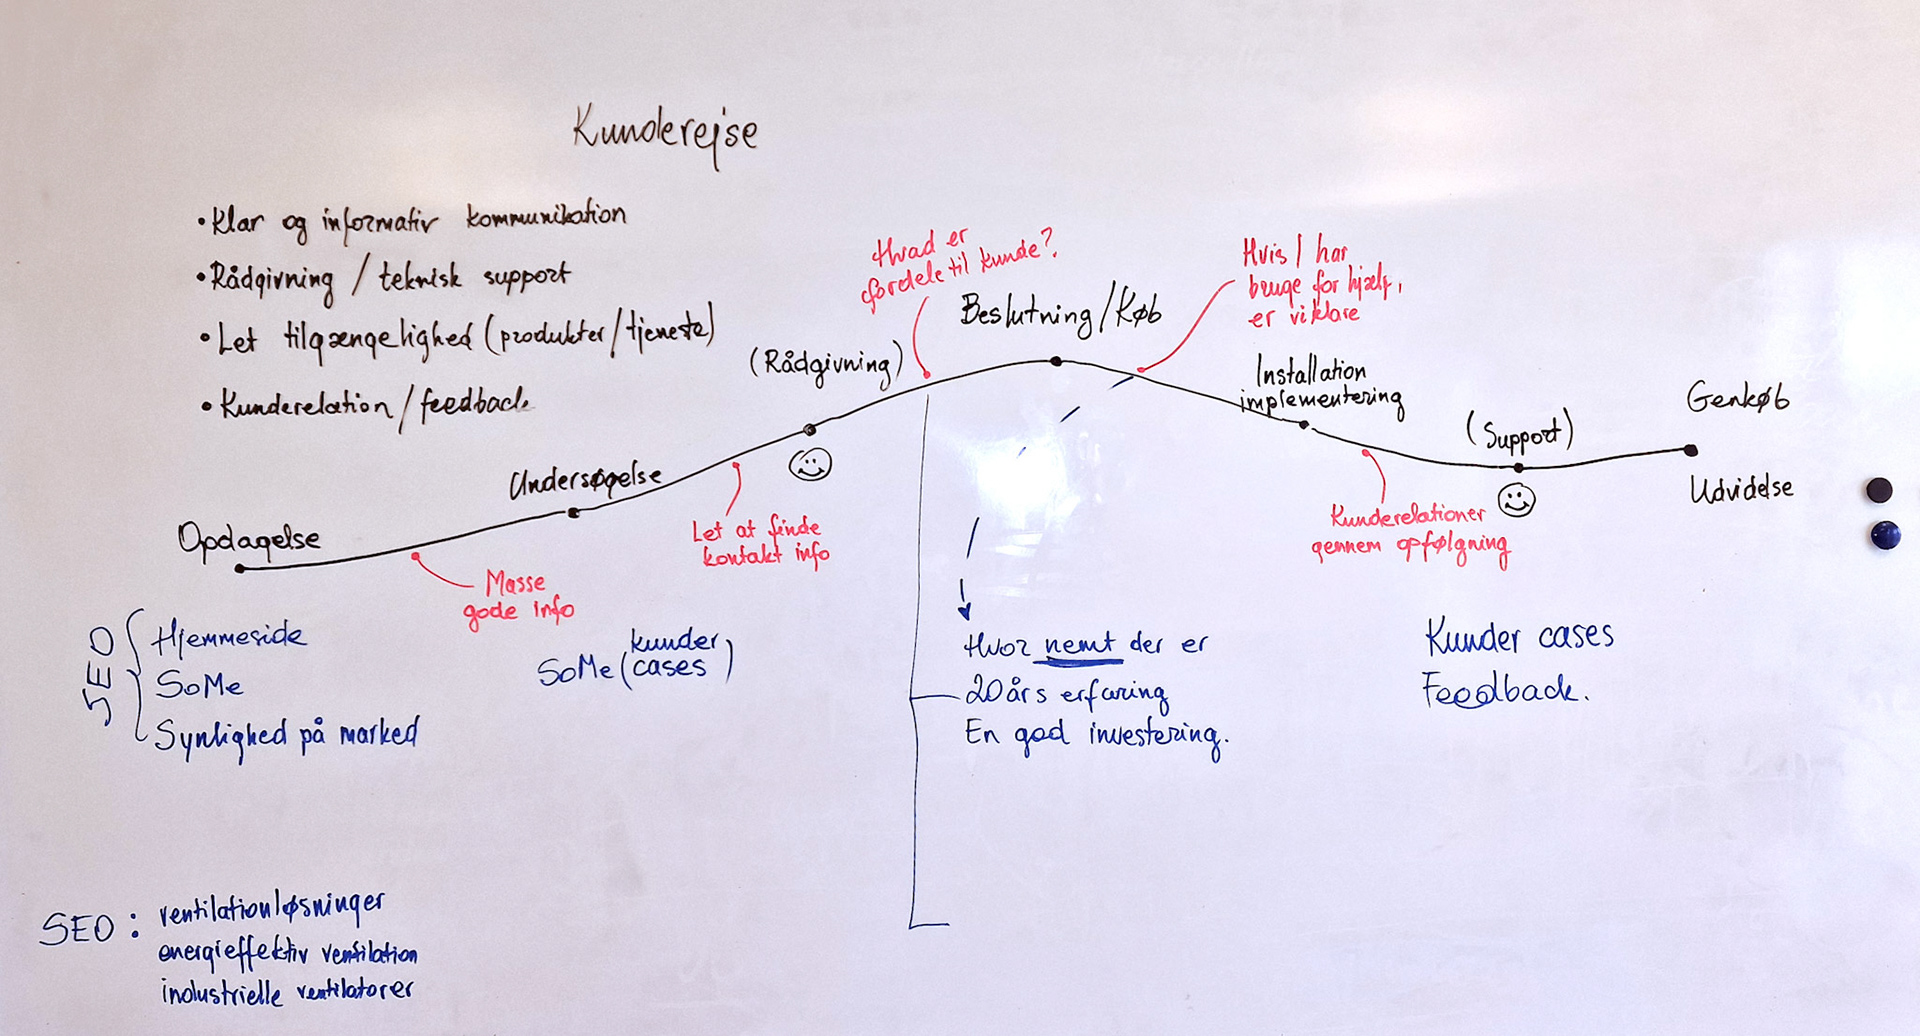 Kunderejse
• Klar og informativ kommunikation
• Rådgivning / teknisk support
• Let tilgængelighed (produkter/tjeneste)
• Kunderelation / feedback
Hvad er
fordele til kunde?
Hvis I har
bruge for hjælp,
er vi klare
Beslutning/Køb
(Rådgivning)
Installation
implementering
Genkøb
(Support)
Undersøgelse
Udvidelse
Opdagelse
Let at finde
kontakt info
Kunderelationer
gennem opfølgning
Masse
gode info
SEO
Hjemmeside
SoMe
Synlighed på marked
SoMe (kunder
cases)
Hvor nemt der er
20 års erfaring
En god investering.
Kunder cases
Feedback.
SEO: ventilationløsninger
energieffektiv ventilation
industrielle ventilatorer